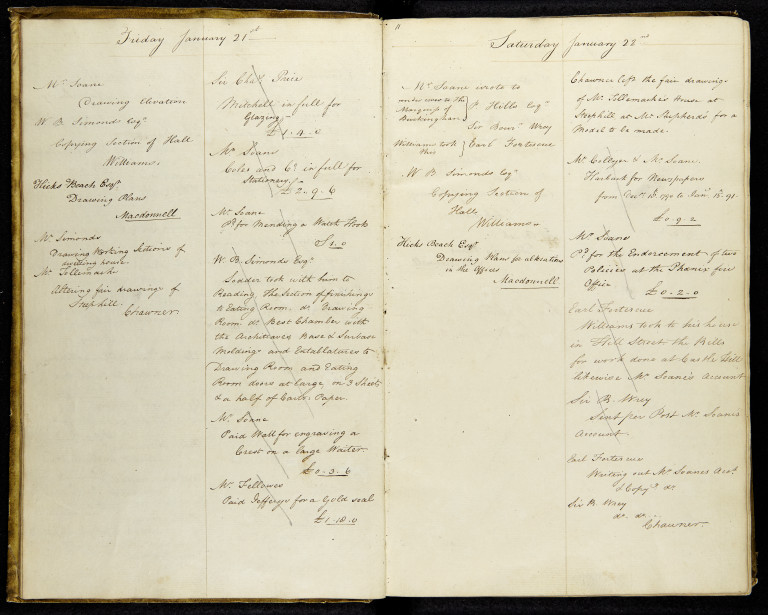 Friday January 21st
Mr Soane
Drawing Elevation
W. B. Simonds Esqr.
Copying Section of Hall
Williams.
Hicks Beach Esqr.
Drawing Plans
Macdonnell
Mr. Simonds
Drawing Working Sections of
dwelling house.
Mr. Tollemache
Altering fair drawings of
Steephill.
Chawner.
Sir Chas. Price
Mitchell in full for
Glazing
£1-4-
Mr. Soane
Coles and Co. in full for
Stationery
£2-9-6
Mr. Soane
Pd. for Mending a Watch Hook
1.0
W. B. Simonds Esqr.
Sodder took with him to
Reading, The Section of finishings
to Eating Room, do. Drawing
Room do Best Chamber with
the Architraves Base & Surbase
Moldings and Entablatures to
Drawing Room and Eating
Room doors at large, on 3 Sheets
& a half of Cart: Paper.
Mr. Soane
Paid Wall for engraving a
Crest on a large Waiter.
£0-3-6
Mr. Fellowes
Paid Jefferys for a Gold seal
£1-18-0
11
Saturday January 22nd
Mr Soane wrote to
writes wrote to the
Marquis of
Buckingham
P. Hills Esqr.
Sir Bourr. Wrey
Williams took
this
Earl Fortescue
W. B. Simonds Esqr.
Copying Section of
Hall
Williams
Hicks Beach Esqr.
Drawing Plans for alterations
in the Offices
Macdonnell
Chawner left the fair drawings
of Mr. Tollemache's House at
Steephill at Mr Shepherds for a
Model to be made.
Mr. Collyer to Mr Soane.
for Newspapers
from Octr. 1790 to Janry. 91.
£0.9.2
Mr. Soane
Pd. for the Endorcement of two
Policies at the Phenix fire
Office
£0.2.0
Earl Fortescue
Williams took to his house
in Hill Street the Bills
for work done at Castle Hill
likewise Mr Soane's Account
Sir B. Wrey
Sent per Post Mr. Soanes
Account
Earl Fortescue
Writing out Mr Soanes Acct.
& Copyg. do
Sir B. Wrey
do. do.
Chawner.